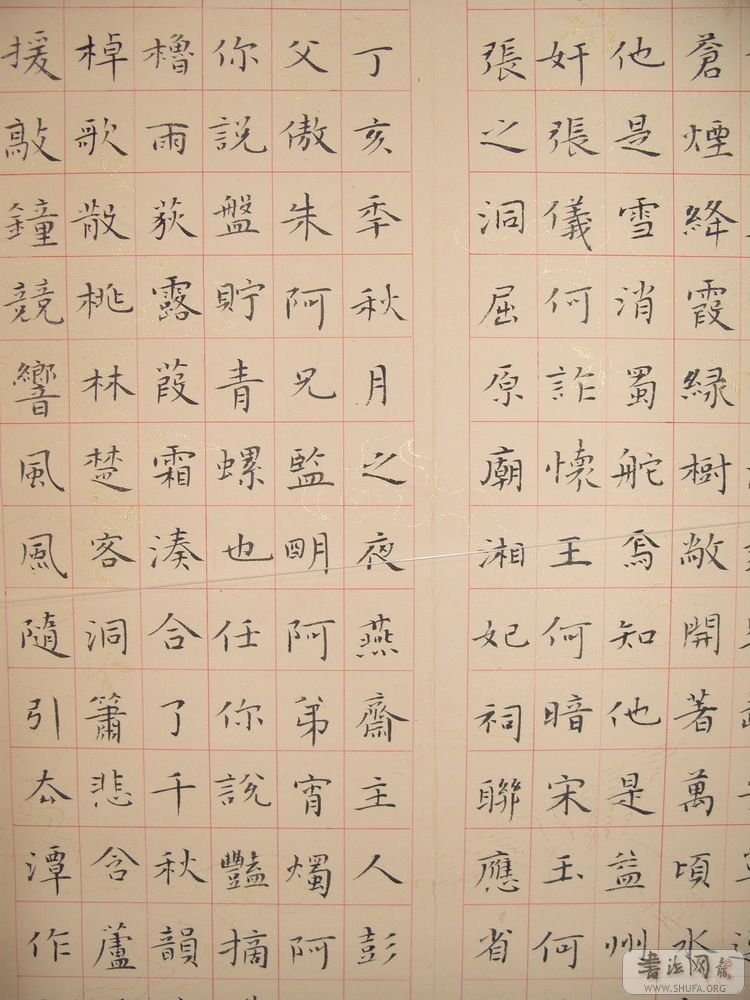 蒼煙絳霞緑樹敞開著萬頃水
他是雪消蜀舵焉知他是益州
奸張儀何詐懷王何暗宋玉何
張之洞屈原廟湘妃祠聯應省
丁亥季秋月之夜燕齋主人彭
父傲朱阿兄監朙阿弟宵燭阿
你說盤貯青螺也任你說豔摘
櫓雨荻露葭霜湊合了千秋韻
棹歌散桃林楚客洞簫悲含蘆
援敲鐘競響風風隨引厺潭作
书法网
WWW.SHUFA.ORG